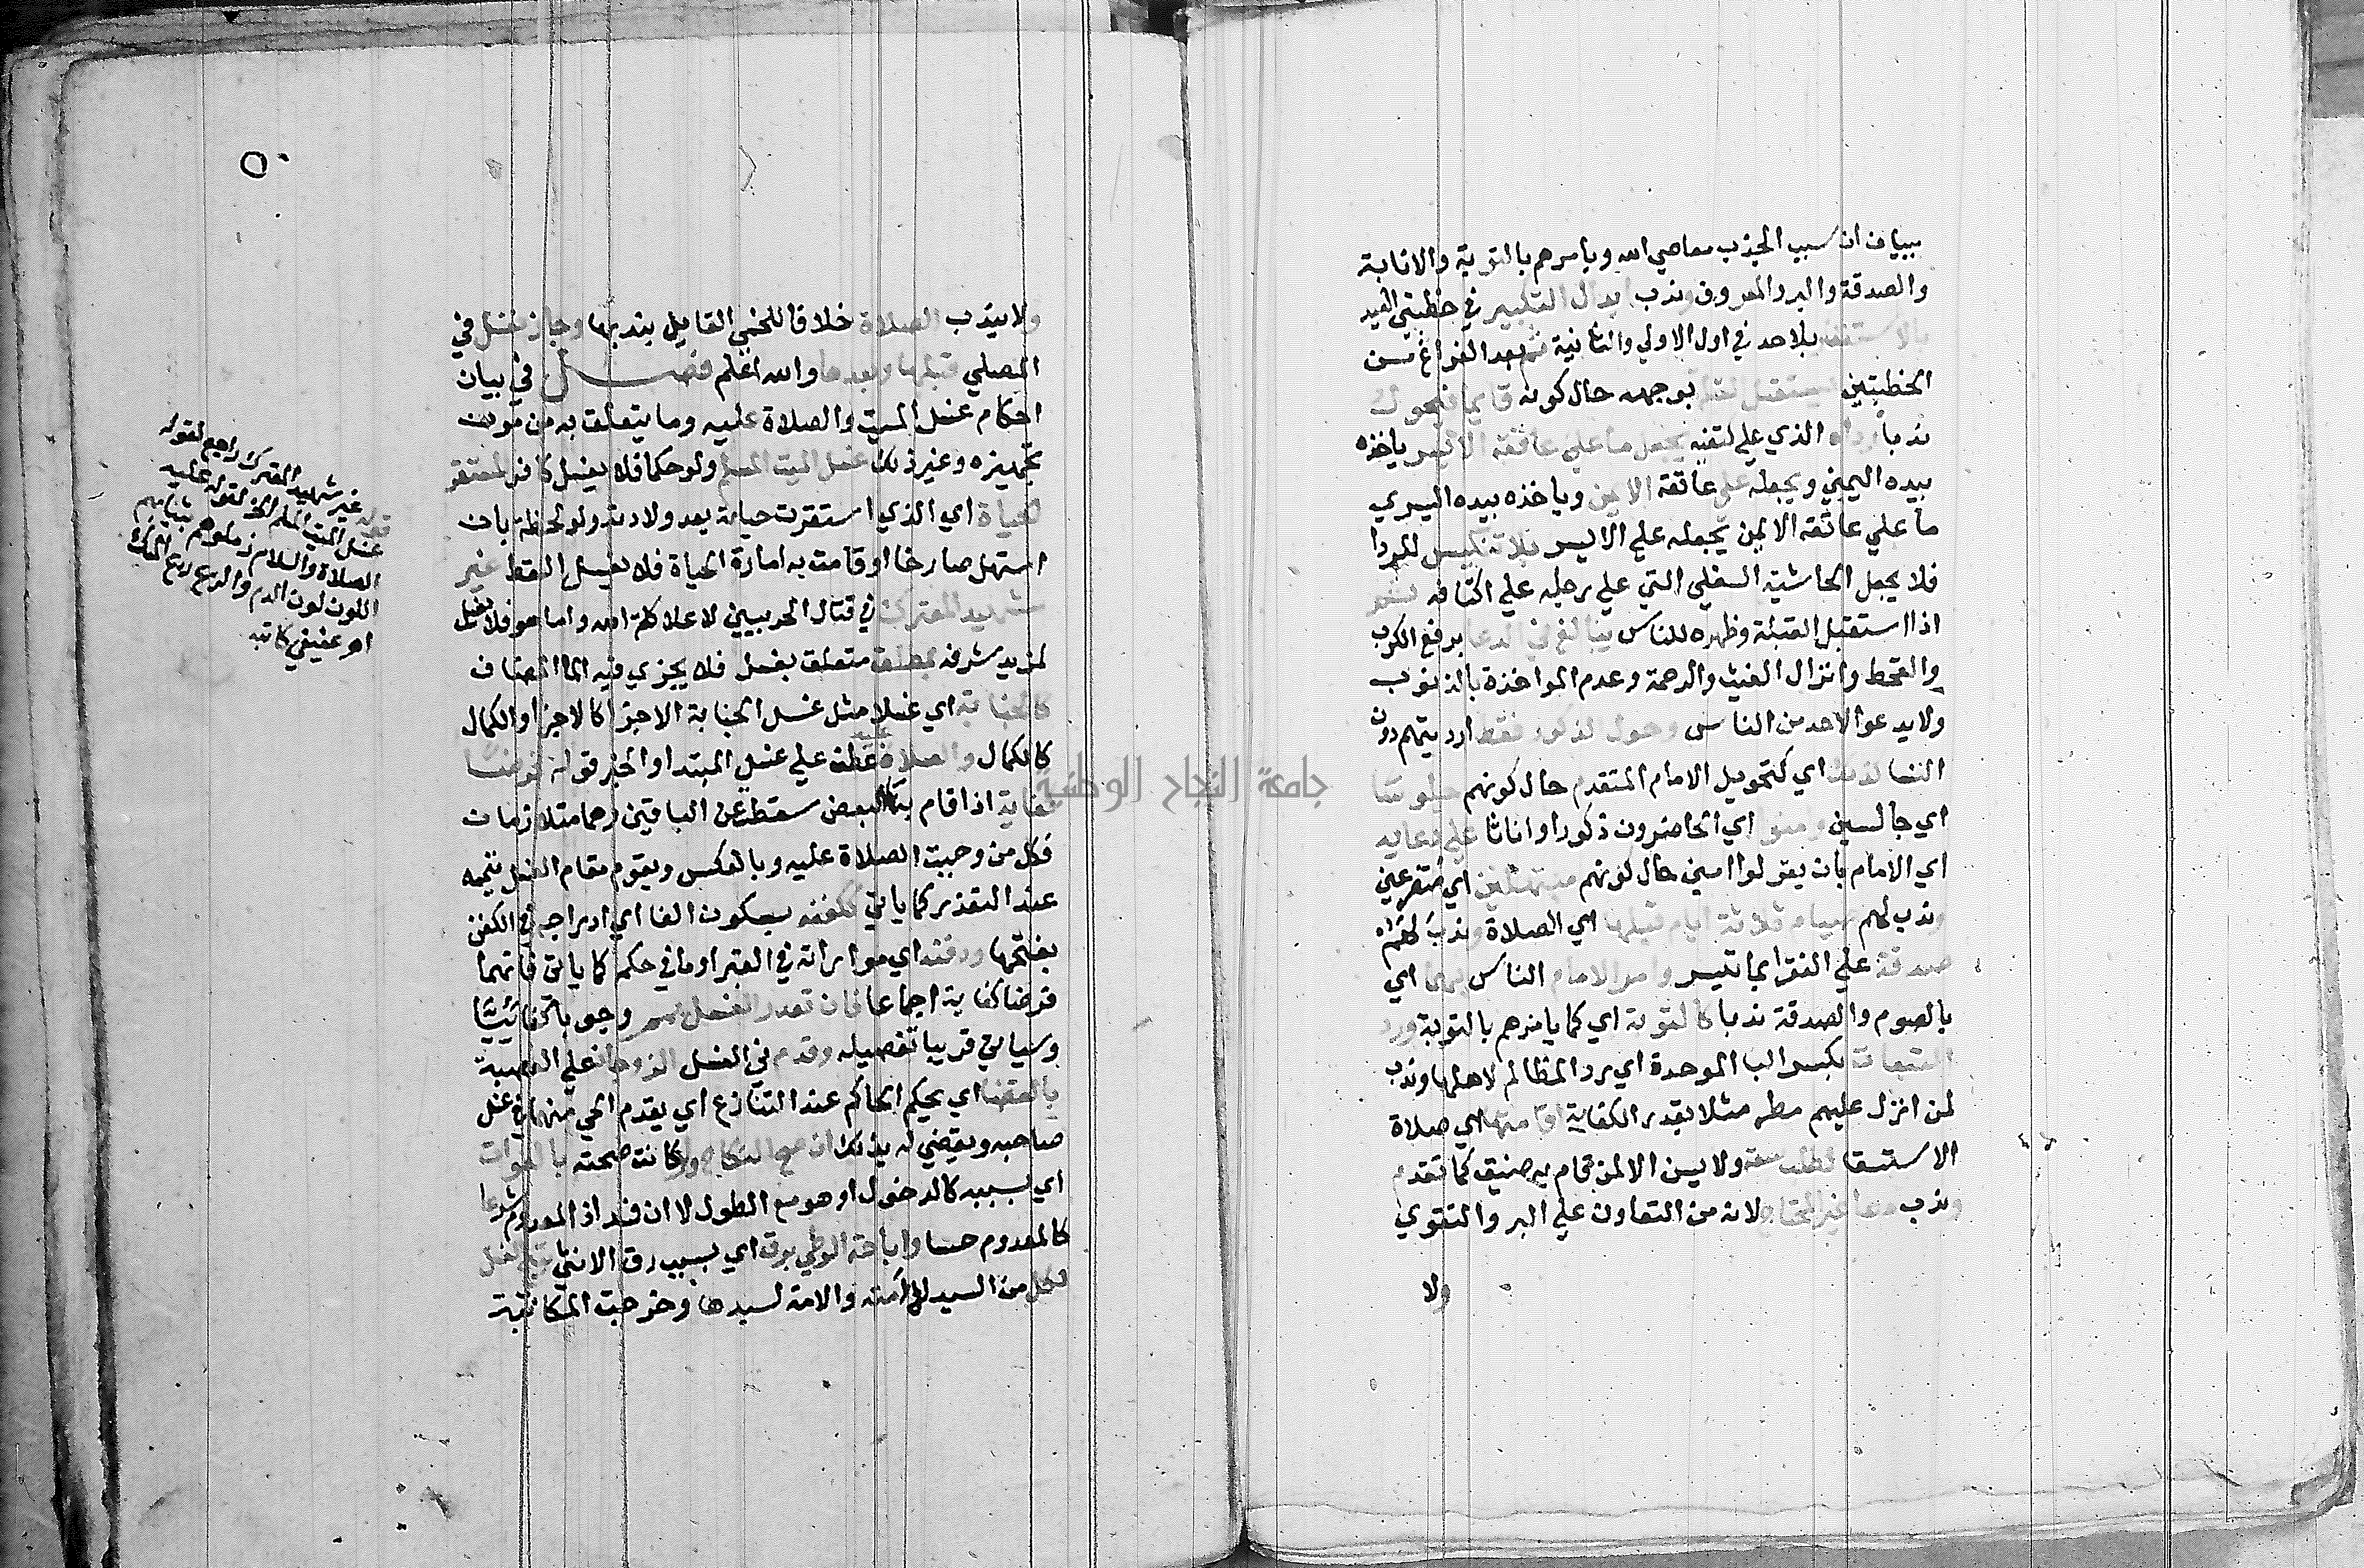 ببيان ان سبب الجذب معاصي الله ويامرهم بالتوبة والانابة
والصدقة والبر والمعروف وندب ابدال التكبير في خطبتي العيد
بالاستغفار بلا حد في اول الاولي والثانية ثم بعد الفراغ من
الخطبتين يستقبل القبلة بوجهه حال كونه قايما فيحول
ندبا رداه الذي علي كتفيه يجعل ما علي عاتقه الايسر ياخذه
بيده اليمني ويجعله علي عاتقه الايمن وياخذه بيده اليسري
ما علي عاتقه الايمن يجعله علي الايسر بلا تنكيس للردا
فلا يجعل الحاشية السفلي التي علي رجليه علي اكتافه ثم
اذا استقبل القبلة وظهره للناس يبالغ في الدعا برفع الكرب
والقحط وانزال الغيث والرحمة وعدم المواخذة بالذنوب
ولا يدعو لاحد من الناس وحول الذكور فقط ارديتهم دون
النسا كذلك اي كتحويل الامام المتقدم حال كونهم جلوسا
اي جالسين وامنوا اي الحاضرون ذكورا واناثا علي دعايه
اي الامام بان يقولوا امين حال كونهم مبتهلين اي متضرعين
وندب لهم صيام ثلاثة ايام قبلها اي الصلاة وندب لهم
صدقة علي الفقرا بما تيسر وامر الامام الناس بهما اي
بالصوم والصدقة ندبا كالتوبة اي كما يامرهم بالتوبة ورد
التبعات بكسر البا الموحدة اي رد المظالم لاهلها وندب
لمن انزل عليهم مطر مثلا بقدر الكفاية اقامتها اي صلاة
الاستسقا لطلب سعة ولا يسن الا لمن قام به ضيق كما تقدم
وندب دعا غير المحتاج لانه من التعاون علي البر والتقوي
ولا
٥٠
ولا يندب الصلاة خلافا للخمي القايل بندبها وجاز تنفل في
المصلي قبلها وبعدها والله اعلم فصل في بيان
احكام غسل الميت والصلاة عليه وما يتعلق به من مون
تجهيزه وغير ذلك غسل الميت المسلم ولو حكما فلا يغسل كافر المستقر
الحياة اي الذي استقرت حياته بعد ولادته ولو لحظة بان
استهل صارخا او قامت به امارة الحياة فلا يغسل السقط غير
شهيد المعترك في قتال الحربيين لاعلا كلمة الله واما هو فلا يغسل
لمزيد شرفه بمطلق متعلق بغسل فلا يجزي فيه الما المضاف
كالجنابة اي غسلا مثل غسل الجنابة الاجزا كالاجزا والكمال
كالكمال والصلاة عليه عطف علي غسل المبتدا والخبر قوله فرضا
كفاية اذا قام بها البعض سقط عن الباقين وهما متلازمان
فكل من وجبت الصلاة عليه وبالعكس ويقوم مقام الغسل تيممه
عند التعذر كما ياتي ككفنه بسكون الفا اي ادراجه في الكفن
بفتحها ودفنه اي مواراته في القبر او ما في حكمه كما ياتي فانهما
فرضا كفاية اجماعا فان تعذر الغسل يمم وجوبا كفائيا
وسياتي قريبا تفصيله وقدم في الغسل الزوجان علي العصبة
بالقضا اي بحكم الحاكم عند التنازع اي يقدم الحي منهما في غسل
صاحبه ويقضي له بذلك ان صح النكاح ولو كانت صحته بالفوات
اي بسببه كالدخول او هو مع الطول لا ان فسد اذ المعدوم شرعا
كالمعدوم حسا واباحة الوطي برق اي بسبب رق الانثي تبيح الغسل
لكل من السيد لامته والامة لسيدها وخرجت المكاتبة
قوله غير شهيد المعترك راجع لقوله
غسل الميت المسلم الخ لقوله عليه
الصلاة والسلام زملوهم بثيابهم
اللون لون الدم والريح ريح المسك
اهـ عفيفي كاتبه
جامعة النجاح الوطنية